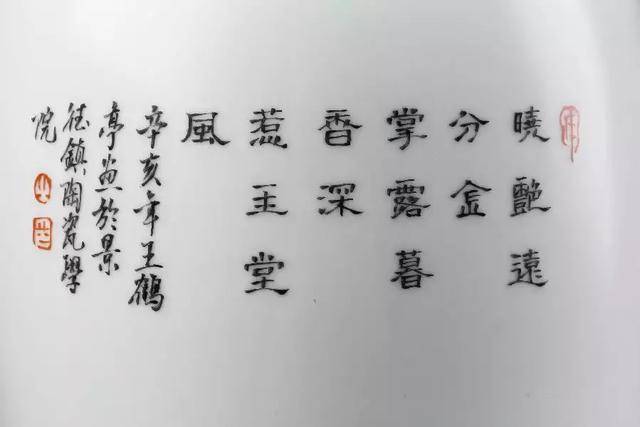 曉艷遠
分金
掌露暮
香深
惹王堂
風
辛亥年王鶴
亭畫於景
德鎮陶瓷學
院